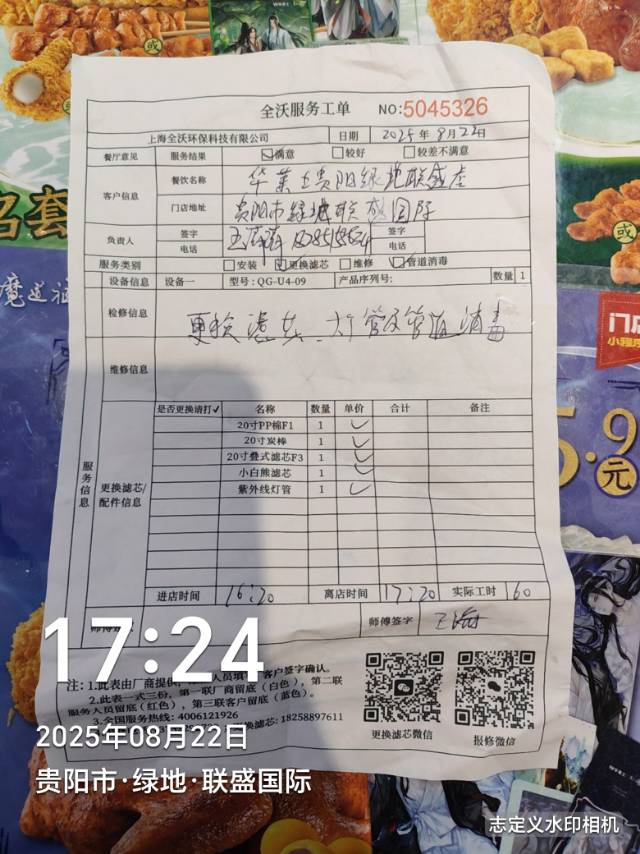 全沃服务工单 NO:5045326
上海全沃环保科技有限公司 日期 2025年8月22日
餐厅意见 服务结果 满意 较好 较差不满意
客户信息 餐饮名称 华莱士贵阳绿地联盛店
门店地址 贵阳市绿地联盛国际
负责人 签字 签字
电话 电话
服务类别 安装 更换滤芯 维修 管道消毒
设备信息 设备一 型号:QG-U4-09 产品序列号: 数量 1
检修信息 更换滤芯、灯管及管道消毒
维修信息
服务信息
更换滤芯/配件信息
是否更换请打✓ 名称 数量 单价 合计 备注
20寸PP棉F1 1 ✓
20寸炭棒 1 ✓
20寸叠式滤芯F3 1 ✓
小白熊滤芯 1 ✓
紫外线灯管 1 ✓
进店时间 16:20 离店时间 17:20 实际工时 60
师傅签字
注:1.此表由厂商提供, 人员填 客户签字确认。
2.此表一式三份,第一联厂商留底(白色),第二联
服务人员留底(红色),第三联客户留底(蓝色)。
3.全国服务热线:4006121926
换滤芯:18258897611
更换滤芯微信 报修微信
17:24
2025年08月22日
贵阳市·绿地·联盛国际
志定义水印相机
名套
魔道祖
或
或
或
门店
小程序
5.9元